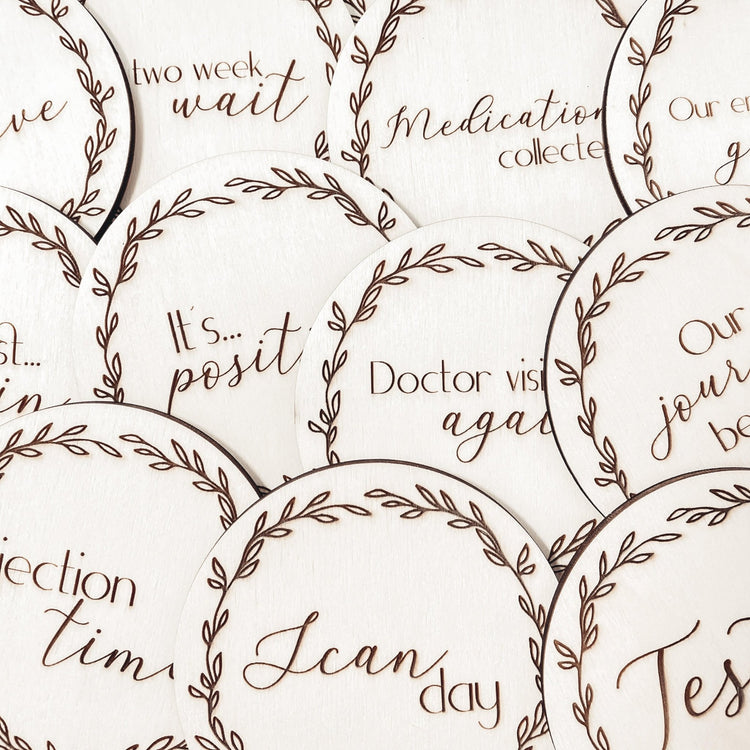 two week
wait
Medication
collecte
Our
It's...
posit
Doctor visi
agai
Our
jour
be
time
Scan
day
Tes